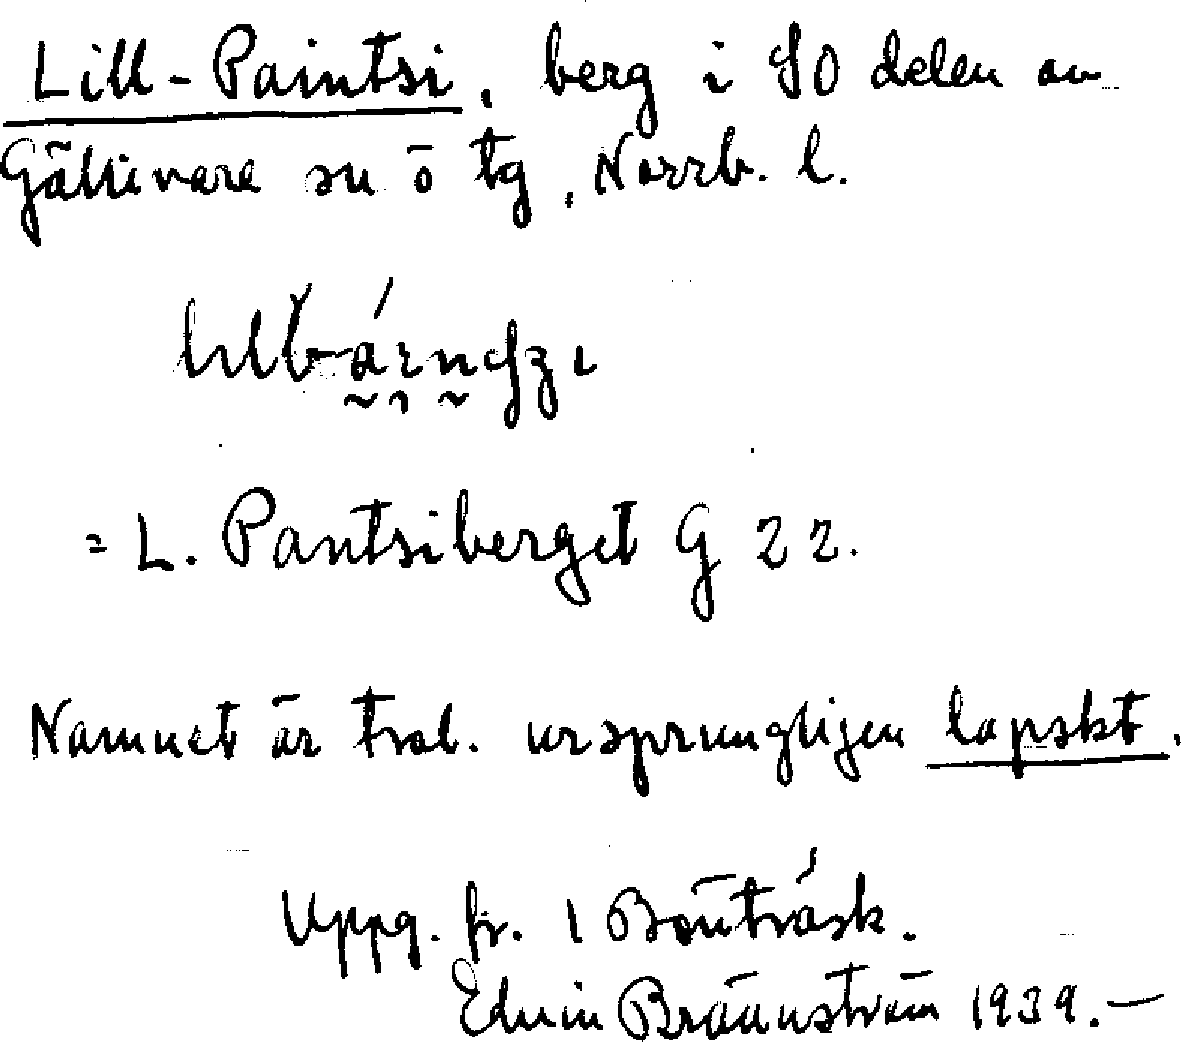 Lill-Paintsi, berg i SO delen av
Gällivare sn o tg, Norrb. l.
= L. Pantsiberget G 22.
Namnet är trol. ursprungligen lapskt.
Uppg. fr. 1 Bönträsk.
Edvin Brännström 1939.—